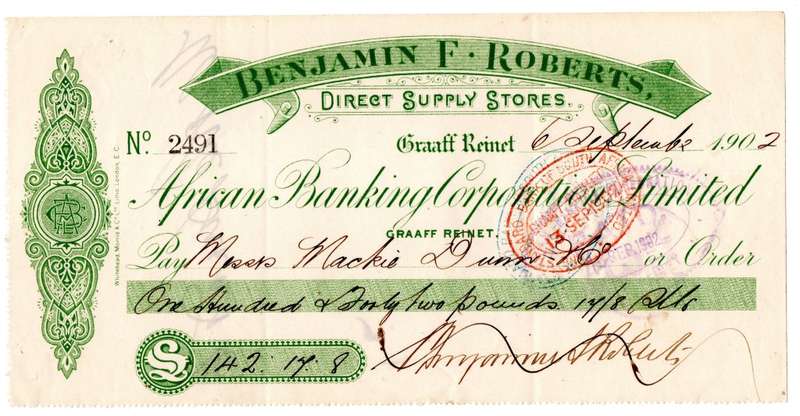 BENJAMIN F. ROBERTS,
DIRECT SUPPLY STORES.
No. 2491 Graaff Reinet 6 September 1902
African Banking Corporation Limited
GRAAFF REINET.
Pay Messrs Mackie Dunn & Co or Order
One Hundred & Forty two pounds 17/8 Stg
£ 142: 17: 8 Benjamin F Roberts
Whitehead, Morris & Co. Ltd. Limd. London, E.C.
13 SEP 1902